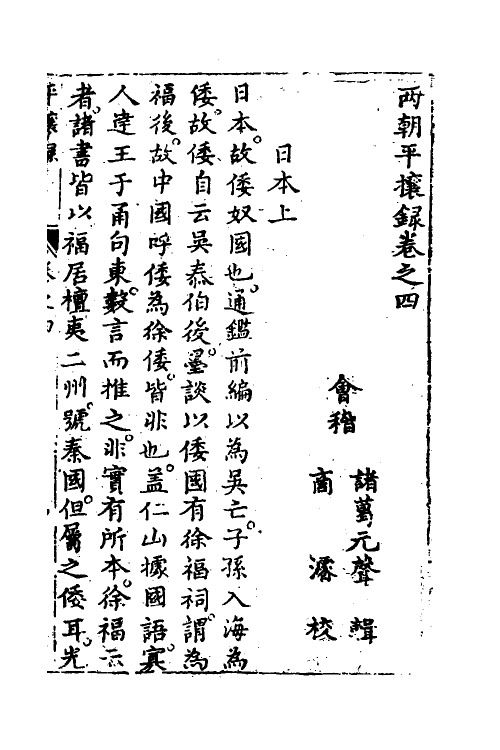 兩朝平攘録卷之四
會稽
諸葛元聲 輯
商濬 校
日本上
日本故倭奴國也通鑑前編以為吳亡子孫入海為
倭故倭自云吳泰伯後墨談以倭國有徐福祠謂為
福後故中國呼倭為徐倭皆非也蓋仁山據國語寘
人達王于甬句東數言而推之非實有所本徐福云
者諸書皆以福居檀夷二州號秦國但屬之倭耳光